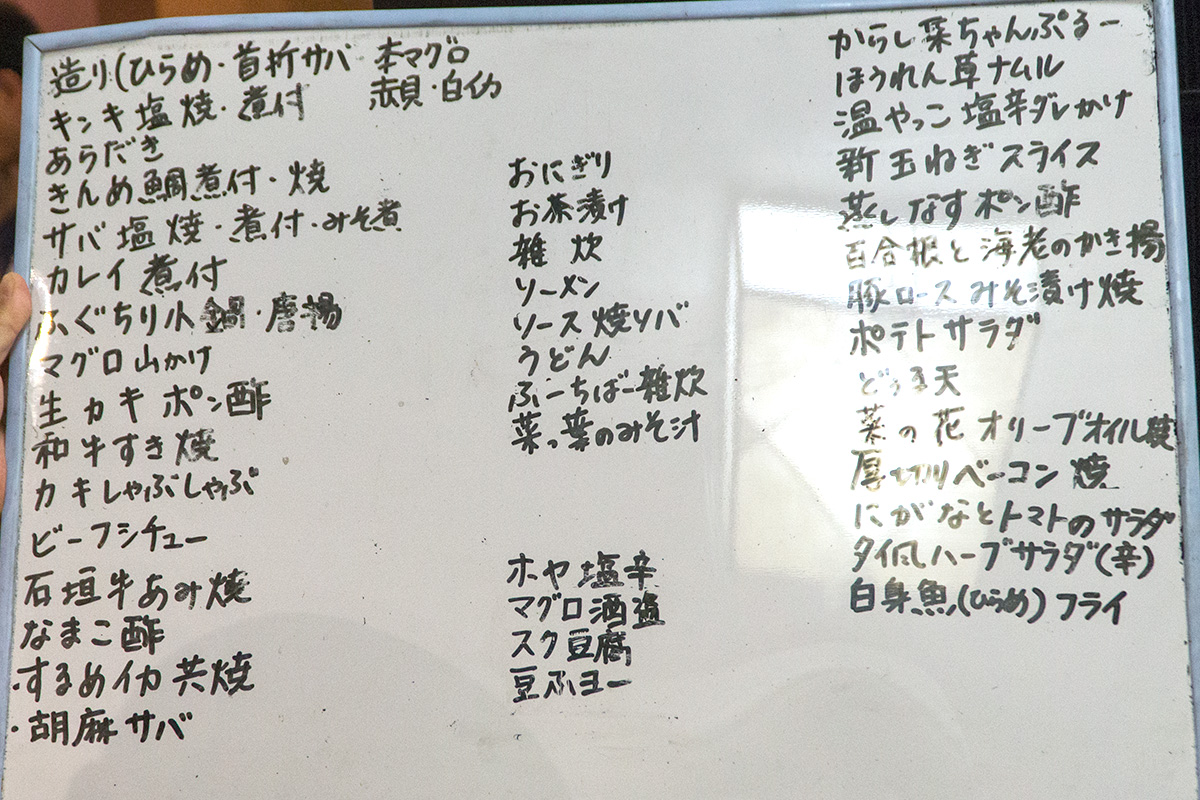 造り(ひらめ・首折サバ 本マグロ
赤貝・白イカ
キンキ塩焼・煮付
あらだき
きんめ鯛煮付・焼
サバ塩焼・煮付・みそ煮
カレイ煮付
ふぐちり小鍋・唐揚
マグロ山かけ
生カキポン酢
和牛すき焼
カキしゃぶしゃぶ
ビーフシチュー
石垣牛あみ焼
なまこ酢
・するめイカ共焼
・胡麻サバ
おにぎり
お茶漬け
雑炊
ソーメン
ソース焼ソバ
うどん
ふーちばー雑炊
菜っ葉のみそ汁
ホヤ塩辛
マグロ酒盗
スク豆腐
豆ふヨー
からし菜ちゃんぷるー
ほうれん草ナムル
温やっこ塩辛ダレかけ
新玉ねぎスライス
蒸しなすポン酢
百合根と海老のかき揚
豚ロースみそ漬け焼
ポテトサラダ
どぅる天
菜の花オリーブオイル焼
厚切りベーコン焼
にがなとトマトのサラダ
タイ風ハーブサラダ(辛)
白身魚(ひらめ)フライ